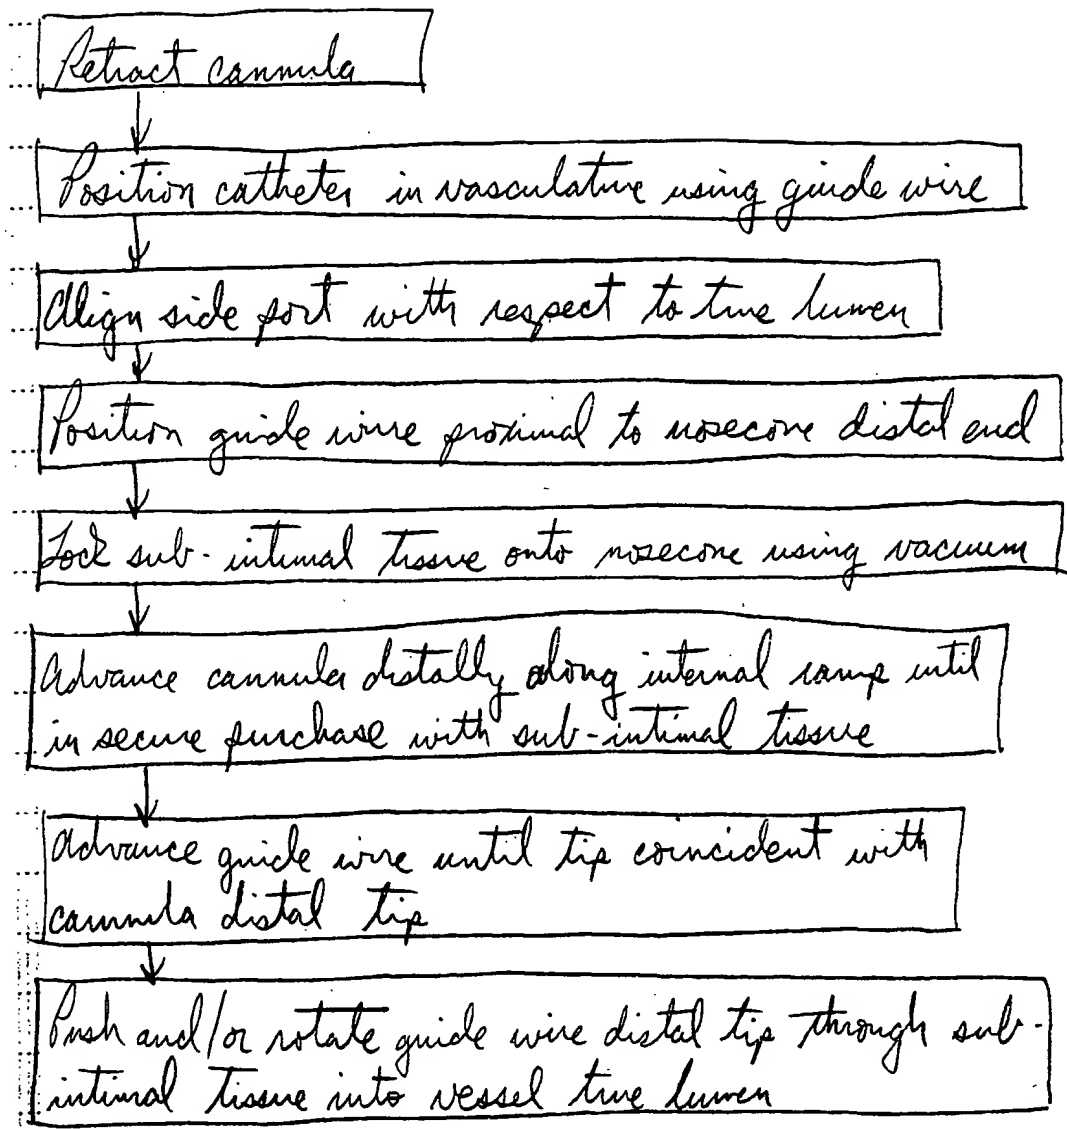 Retract cannula
Position catheter in vasculature using guide wire
Align side port with respect to true lumen
Position guide wire proximal to nosecone distal end
Lock sub-intimal tissue onto nosecone using vacuum
Advance cannula distally along internal ramp until
in secure purchase with sub-intimal tissue
Advance guide wire until tip coincident with
cannula distal tip
Push and/or rotate guide wire distal tip through sub-
intimal tissue into vessel true lumen